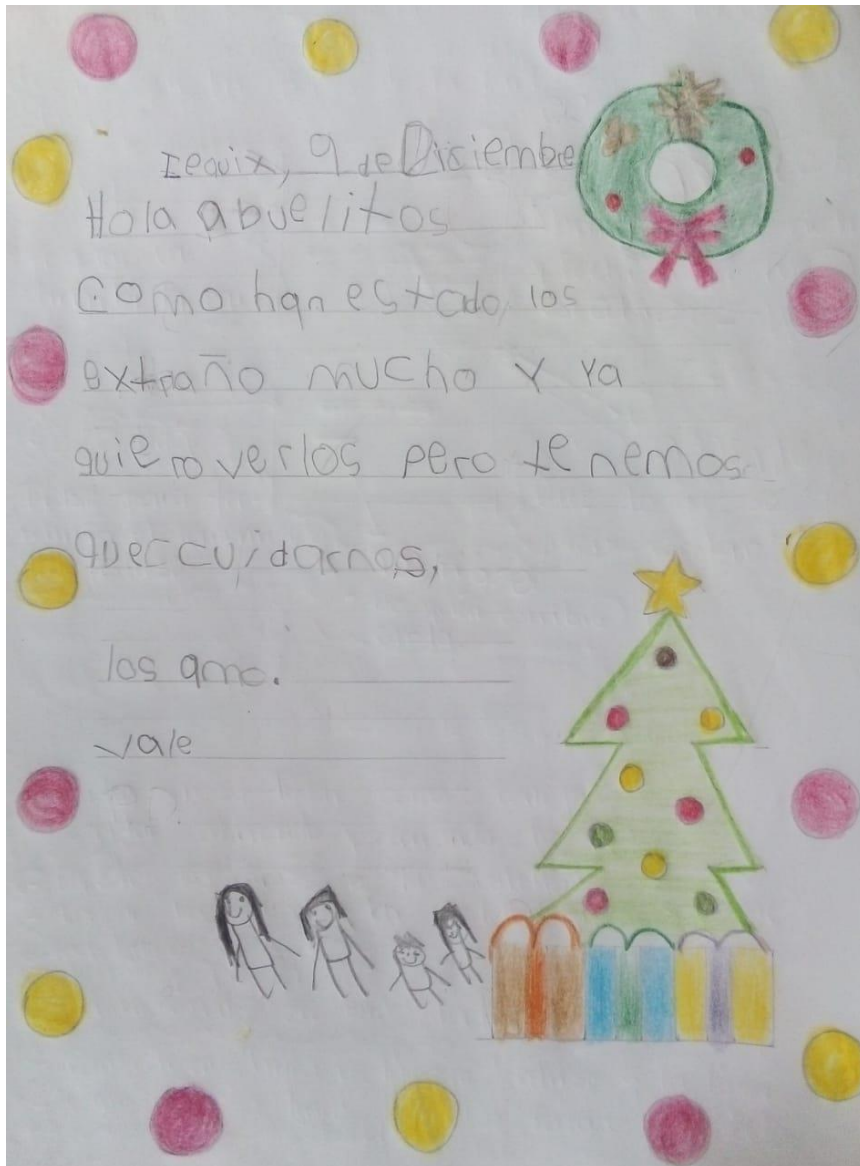 Iequix, 9 de Diciembre
Hola abuelitos
Como han estado, los
extraño mucho y ya
quiero verlos pero tenemos
que cuidarnos,
los amo.
Vale